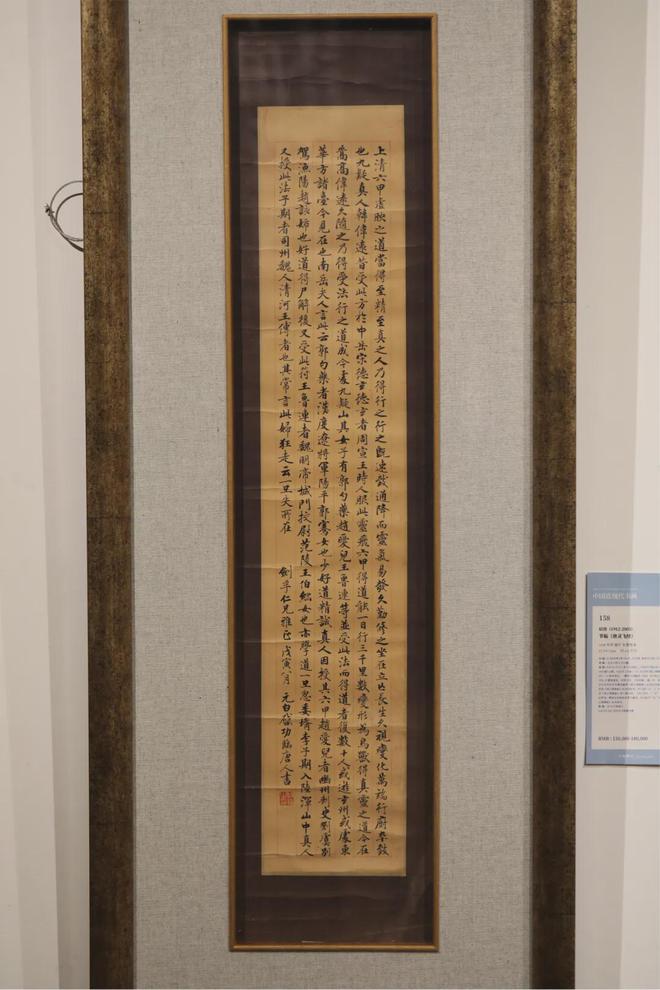 上清六甲虛映之道當得至精至真之人乃得行之行之既速致通降而靈氣易發久勤修之坐在立亡長生久視變化萬端行廚卒致
也九疑真人韓偉遠昔受此方於中岳宋德玄德玄者周宣王時人服此靈飛六甲得道能一日行三千里數變形為鳥獸得真靈之道今在
嵩高偉遠久隨之乃得受法行之道成今處九疑山其女子有郭勺藥趙愛兒王魯連等並受此法而得道者復數十人或遊玄州或處東
華方諸臺今見在也南岳夫人言此云郭勺藥者漢度遼將軍陽平郭騫女也少好道精誠真人因授其六甲趙愛兒者幽州刺史劉虞別
駕漁陽趙該姊也好道得尸解後又受此符王魯連者魏明帝城門校尉范陵王伯綱女也亦學道一旦忽委壻李子期入陸渾山中真人
又授此法子期者司州魏人清河王傅者也其常言此婦狂走云一旦失所在
劍孚仁兄雅正戊寅八月元白啟功臨唐人書
中国近现代书画
158